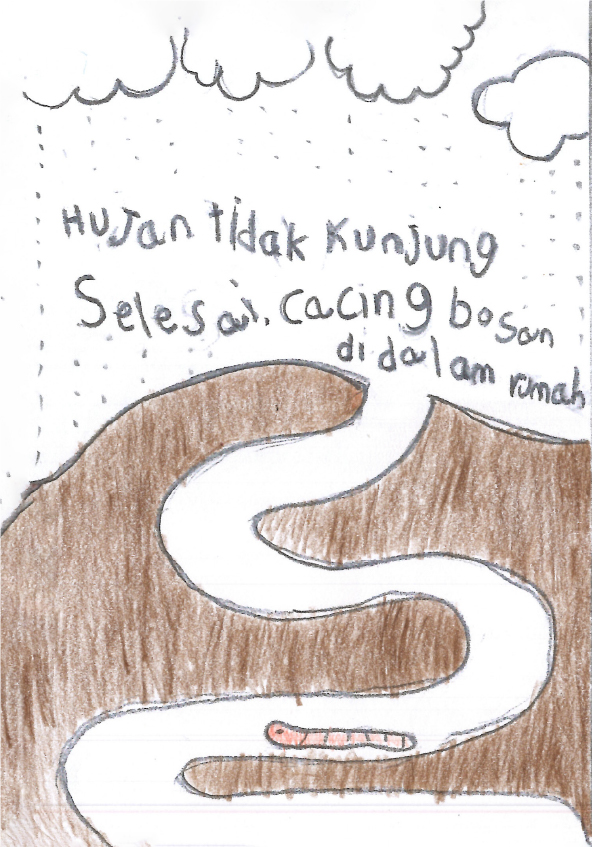 Hujan tidak kunjung
Selesai. cacing bosan
di dalam rumah